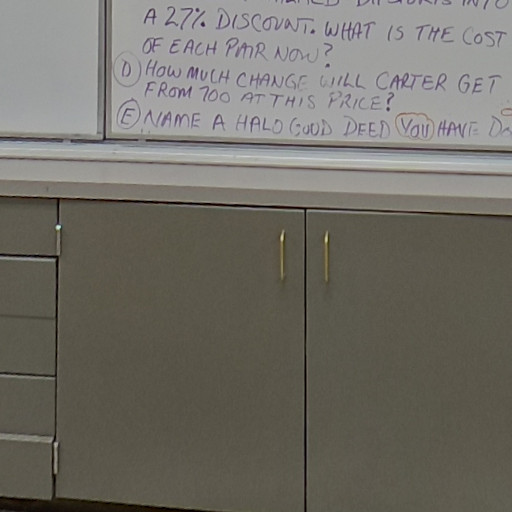 A 27% DISCOUNT. WHAT IS THE COST
OF EACH PAIR NOW?
D HOW MUCH CHANGE WILL CARTER GET
FROM 700 AT THIS PRICE?
E NAME A HALO GOOD DEED YOU HAVE